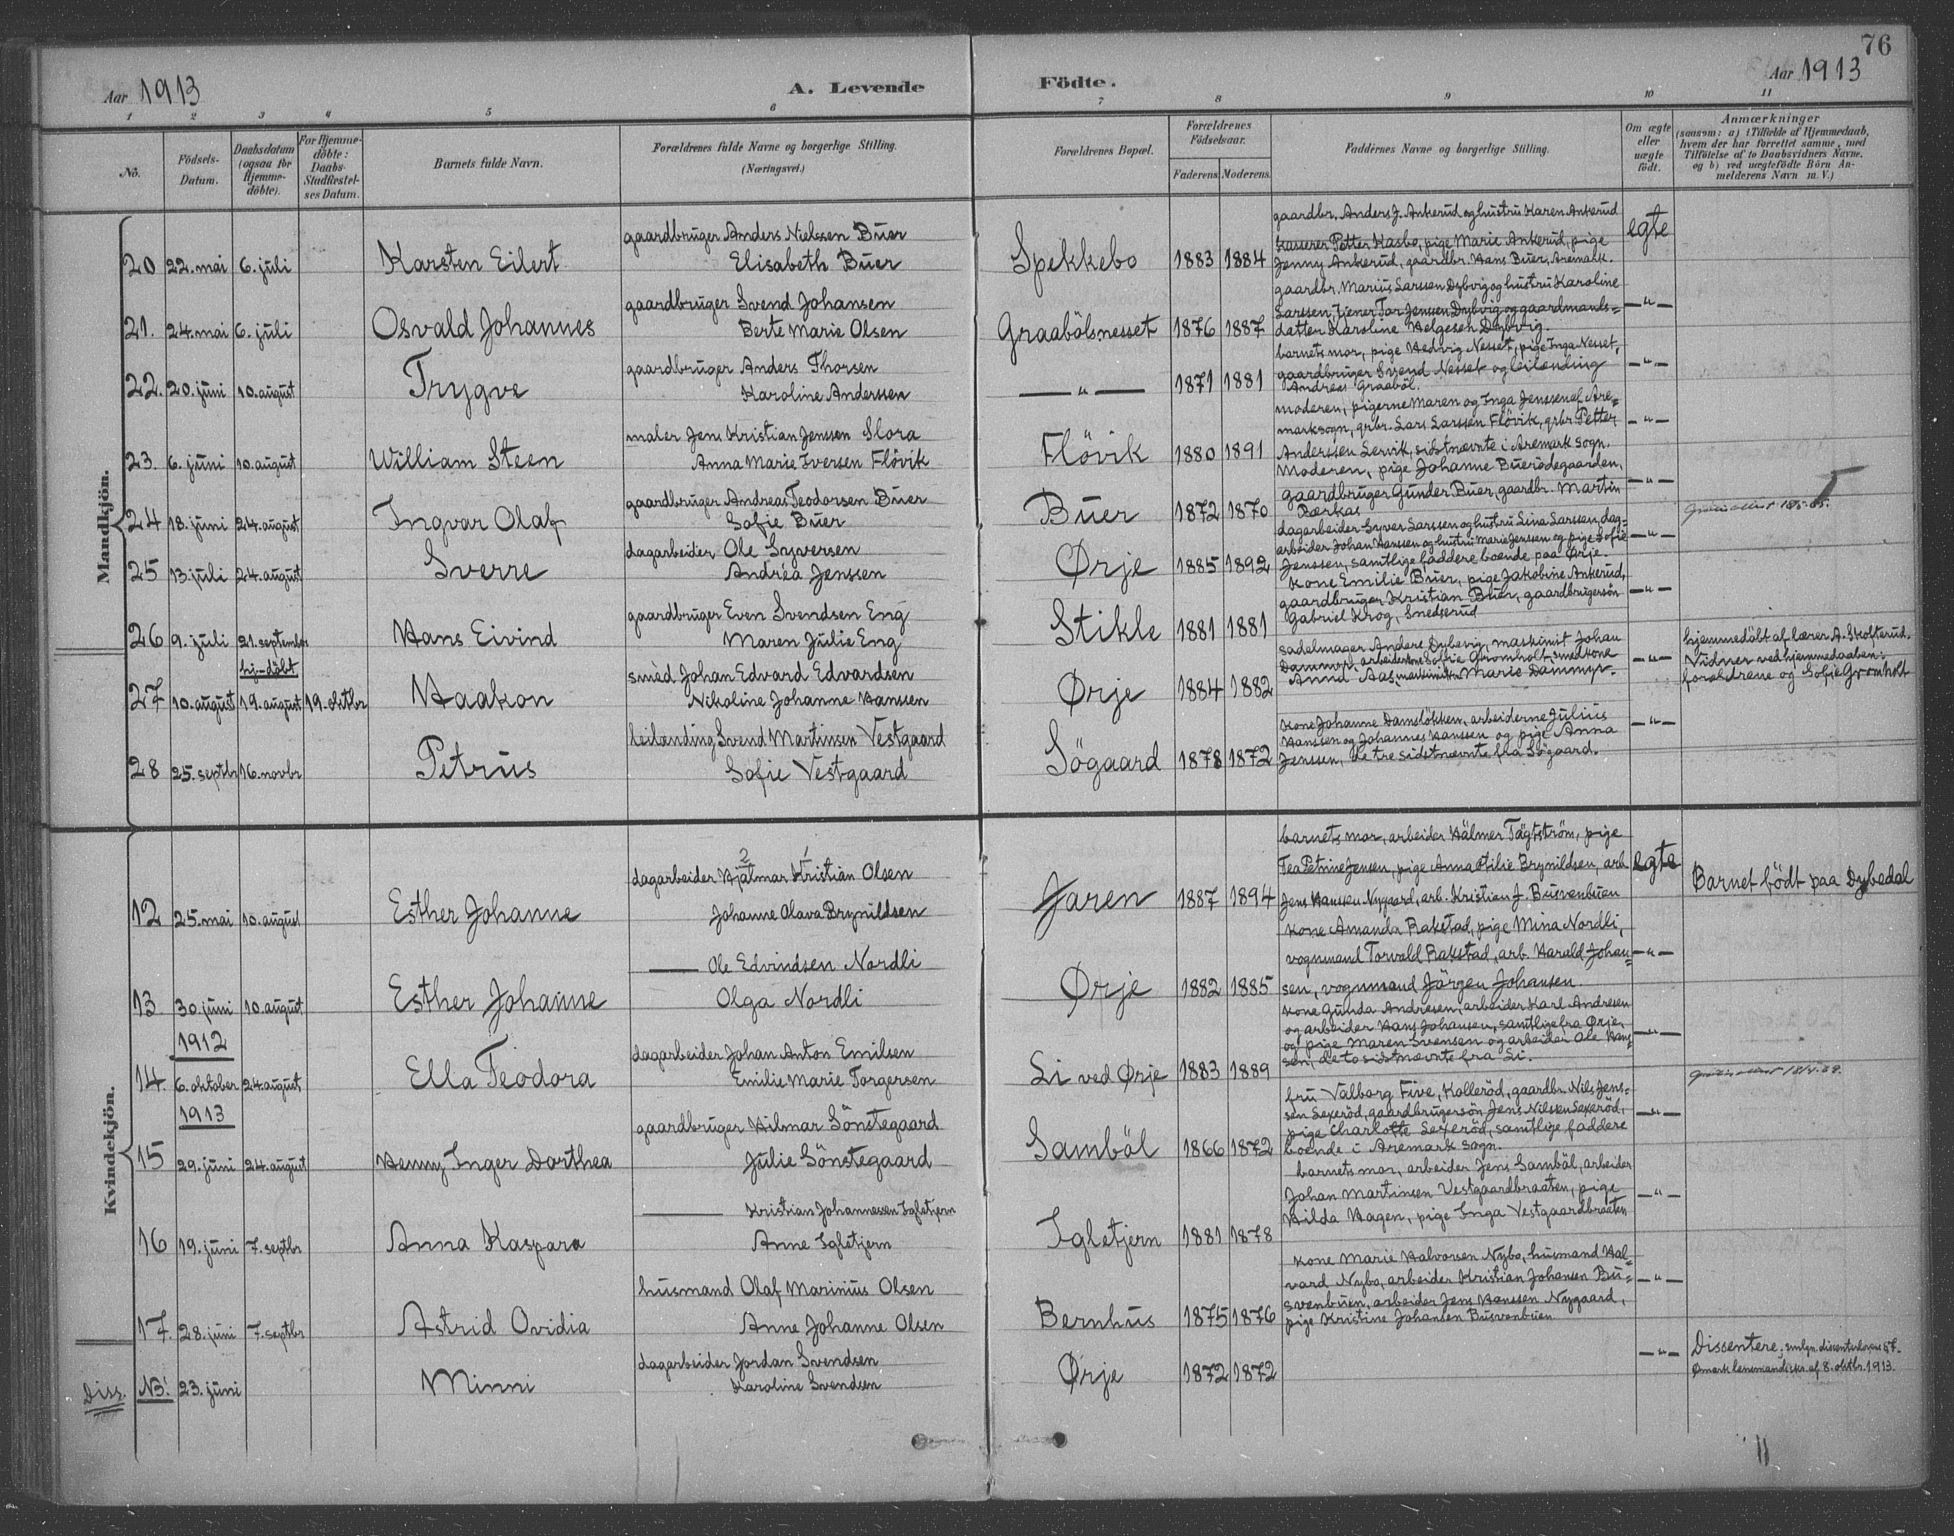 76
Aar 1913
A. Levende Födte.
Aar 1913
1 2 3 4 5 6 7 8 9 10 11
No.
Födsels-Datum.
Daabsdatum (ogsaa for Hjemme-döbte).
For Hjemme-döbte: Daabs-Stadfæstel-ses Datum.
Barnets fulde Navn.
Forældrenes fulde Navne og borgerlige Stilling. (Næringsvei.)
Forældrenes Bopæl.
Forældrenes Födselsaar.
Faderens. Moderens.
Faddernes Navne og borgerlige Stilling.
Om ægte eller uægte födt.
Anmærkninger
(saasom: a) i Tilfælde af Hjemmedaab, hvem der har forrettet samme, med Tilföielse af to Daabsvidners Navne, og b) ved uægtefödte Börn Anmelderens Navn m. V.)
Mandkjön.
20 22. mai 6. juli Karsten Eilert
gaardbruger Anders Nielssen Buer
Elisabeth Buer
Spekkebo 1883 1884
gaardbr. Anders J. Ankerud og hustru Karen Ankerud
kasserer Petter Kasbo, pige Marie Ankerud, pige
Jenny Ankerud, gaardbr. Hans Buer, Aremark.
egte
21. 24. mai 6. juli Osvald Johannes
gaardbruger Svend Johansen
Berte Marie Olsen
Graabölnesset 1876 1887
gaardbr. Marius Larssen Dybvig og hustru Karoline
Larssen, tjener Tor Jenssen Dybvig og gaardmands=
datter Karoline Helgesen Dybvig.
— " —
22. 20. juni 10. august Trygve
gaardbruger Anders Thorsen
Karoline Anderssen
— " — 1871 1881
barnets mor, pige Hedvig Nesset, pige Inga Nesset,
gaardbruger Svend Nesset og leilænding
Andreas Graaböl.
— " —
23. 6. juni 10. august William Steen
maler Jens Kristian Jenssen Slora
Anna Marie Iversen Flövik
Flövik 1880 1891
moderen, pigerne Maren og Inga Jenssen af Are=
mark sogn, grbr. Lars Larssen Flövik, grbr. Petter
Anderssen Lervik, sidstnævnte i Aremark sogn.
— " —
24 18. juni 24. august Ingvar Olaf
gaardbruger Andreas Teodorsen Buer
Sofie Buer
Buer 1872 1870
Moderen, pige Johanne Buerödegaarden,
gaardbruger Gunder Buer, gaardbr. Martin
Pærkas
— " —
25 13. juli 24. august Sverre
dagarbeider Ole Syversen
Andréa Jenssen
Ørje 1885 1892
dagarbeider Syver Larssen og hustru Lina Larssen, dag=
arbeider Johan Hanssen og hustru Marie Jenssen og pige Sofie
Jenssen, samtlige faddere boende paa Ørje.
— " —
26 9. juli 21. september Hans Eivind
gaardbruger Even Svendsen Eng
Maren Julie Eng
Stikle 1881 1881
Kone Emilie Buer, pige Jakobine Ankerud,
gaardbruger Kristian Buer, gaardbrugersön
Gabriel Krog, Snedserud
— " —
27 10. august hj-döbt 19. august 19. oktbr Haakon
smed Johan Edvard Edvardsen
Nikoline Johanne Hanssen
Ørje 1884 1882
sadelmager Anders Dybevig, maskinist Johan
Dammyr, arbeiderske Sofie Gromholt, smedkone
Anna Aas, Marie Dammyr.
— " —
hjemmedöbt af lærer A. Skofterud.
Vidner ved hjemmedaaben:
forældrene og Sofie Gromholt
28 25. septbr 16. novbr Petrus
leilænding Svend Martinsen Vestgaard
Sofie Vestgaard
Sögaard 1878 1872
Kone Johanne Damslökken, arbeiderne Julius
Hanssen og Johannes Hanssen og pige Anna
Jenssen, de tre sidstnævnte fra Sögaard.
— " —
Kvindekjön.
12 25. mai 10. august Esther Johanne
2 1
dagarbeider Hjalmar Kristian Olsen
Johanne Olava Brynildsen
Jaren 1887 1894
barnets mor, arbeider Hälmer Tägtström, pige
Tea Petrine Jensen, pige Anna Otilie Brynildsen, arb.
Jens Hanssen Nygaard, arb. Kristian J. Busvenbuen
egte
Barnet födt paa Dybedal
13. 30. juni 10. august Esther Johanne
— Ole Edvindsen Nordli
Olga Nordli
Ørje 1882 1885
Kone Amanda Rakstad, pige Mina Nordli,
vognmand Torvald Rakstad, arb. Harald Johan=
sen, vognmand Jörgen Johansen.
— " —
1912
14. 6. oktober 24. august Ella Teodora
dagarbeider Johan Anton Emilsen
Emilie Marie Torgersen
Li ved Ørje 1883 1889
Kone Gunda Andresen, arbeider Karl Andresen
og arbeider Hans Johansen, samtlige fra Ørje,
og pige Maren Svensen og arbeider Ole Hans=
sen, de to sidstnævnte fra Li.
— " —
1913
15 29. juni 24. august Henny Inger Dorthea
gaardbruger Hilmar Sönstegaard
Julie Sönstegaard
Samböl 1866 1872
fru Valborg Five, Kolleröd, gaardbr. Nils Jens=
sen Sexeröd, gaardbrugersön Jens Nilssen Sexeröd,
pige Charlotte Sexeröd, samtlige faddere
boende i Aremark sogn.
— " —
16 19. juni 7. septbr Anna Kaspara
— Kristian Johannessen Igletjern
Anne Igletjern
Igletjern 1881 1878
barnets mor, arbeider Jens Samböl, arbeider
Johan Martinsen Vestgaardbraaten, pige
Hilda Hagen, pige Inga Vestgaardbraaten
— " —
17. 28. juni 7. septbr Astrid Ovidia
husmand Olaf Marinius Olsen
Anne Johanne Olsen
Bernhus 1875 1876
Kone Marie Halvorsen Nybo, husmand Hal=
vard Nybo, arbeider Kristian Johansen Bu=
svenbuen, arbeider Jens Hanssen Nygaard,
pige Kristine Johansen Busvenbuen
— " —
Diss. NB! 23. juni Minni
dagarbeider Jordan Svendsen
Karoline Svendsen
Ørje 1872 1872
— " —
Dissentere,
lensmandiskr. af 8. oktbr. 1913.